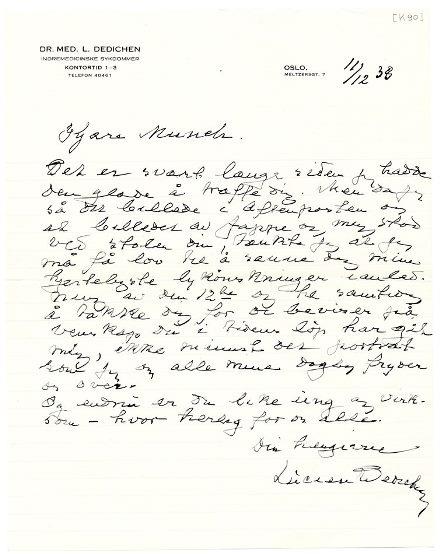 [K 90]
DR. MED. L. DEDICHEN
INDREMEDICINSKE SYKDOMMER
KONTORTID 1-3
TELEFON 40461
OSLO,
MELTZERSGT. 7
11/12 38
Kjære Munch.
Det er svært lange siden jeg hadde
den glæde å træffe dig. Men da jeg
så dit billede i Aftenposten og
et billedet av Jappe og mig stod
ved stolen din, tænkte jeg at jeg
må få lov til å sende dig mine
hjerteligste lykønskninger i anled-
ning av den 12te og til samtidig
å takke dig for de beviser på
vennskap du i tidens løp har gitt
mig, ikke minst det portræt
som jeg og alle mine daglig fryder
os over.
Og endnu er du like ung og virk-
som – hvor herlig for os alle.
Din hengivne
Lucien Dedichen